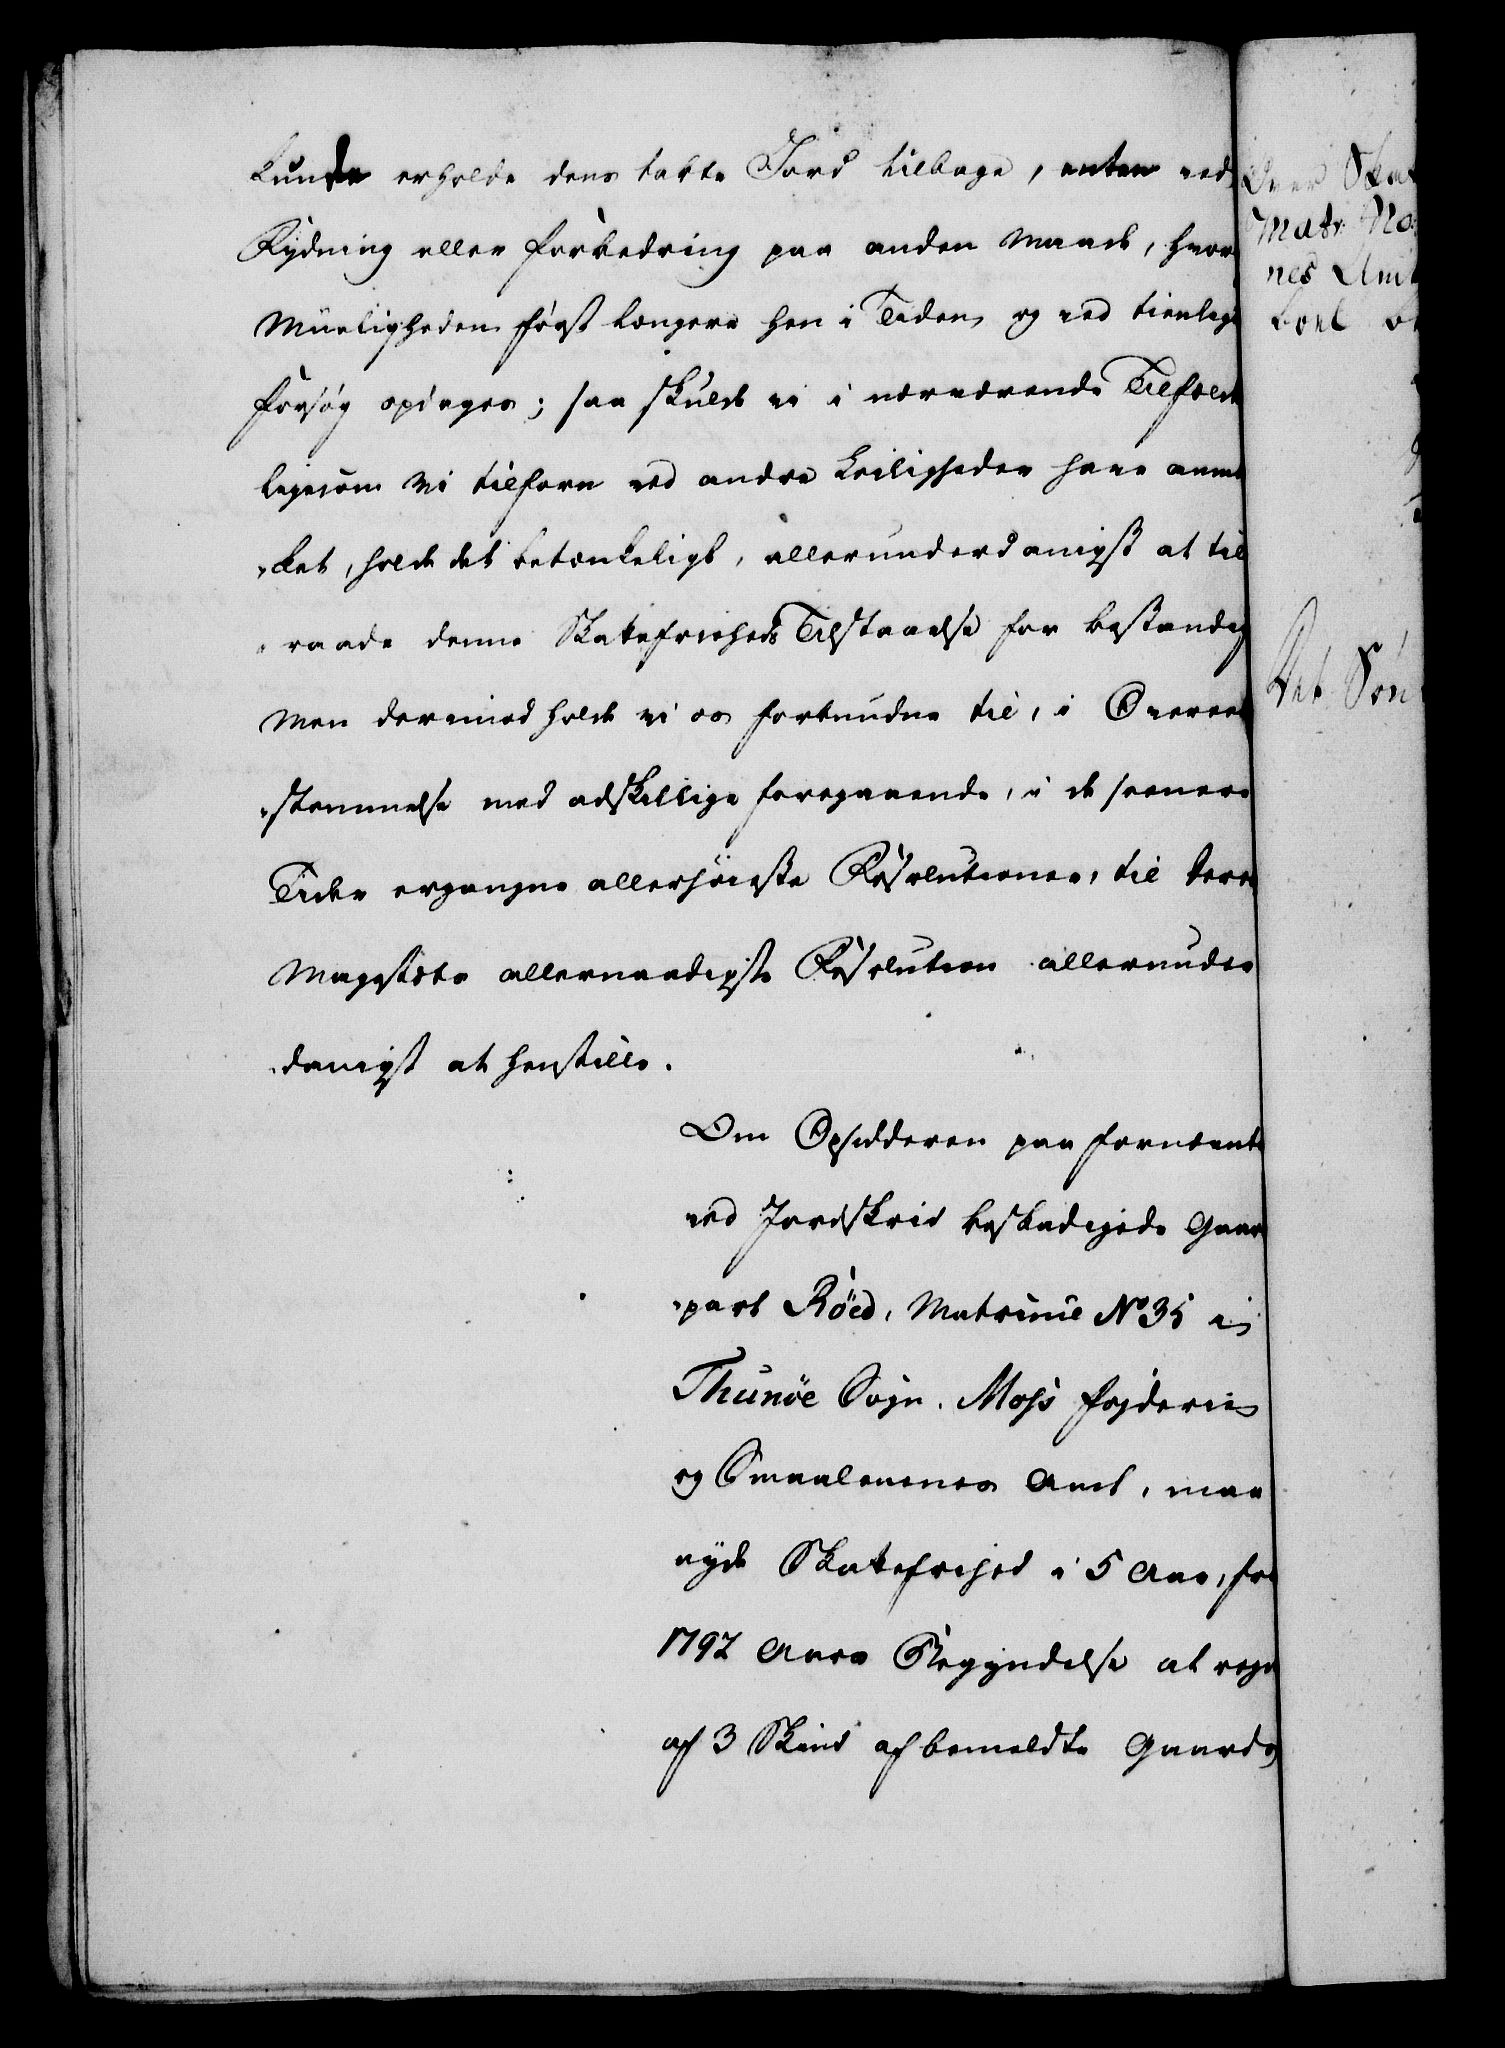 kunde erholde dens tabte Jord tilbage, enten ved
Rydning eller forbedring paa anden Maade, hvor
Mueligheden først længere hen i Tiden og ved tienlige
forsøg opdages; saa skulde vi i nærværende Tilfælde
ligesom vi tilforn ved andre Leiligheder have anmær
ket, holde det betænkeligt, allerunderdanigst at til
raade denne Skattefriheds Tilstaaelse for bestandig
Men derimod holde vi os forbundne til, i Overeens
stemmelse med adskillige foregaaende, i de seenere
Tider ergangne allerhøieste Resolutioner, til Deres
Majestæts allernaadigste Resolution allerunder
danigst at henstille.
Om Opsidderen paa fornævnte
ved Jordskrid beskadigede Gaar
part Röed, Matricul No 35 i
Thunöe Sogn, Moss fogderie
og Smaalenenes Amt, maa
nyde Skattefrihed i 5 Aar, fra
1792 Aars Begyndelse at regne
af 3 Skind af bemeldte Gaards
Over Skat
Matr. No
nes Amt
Det Sön